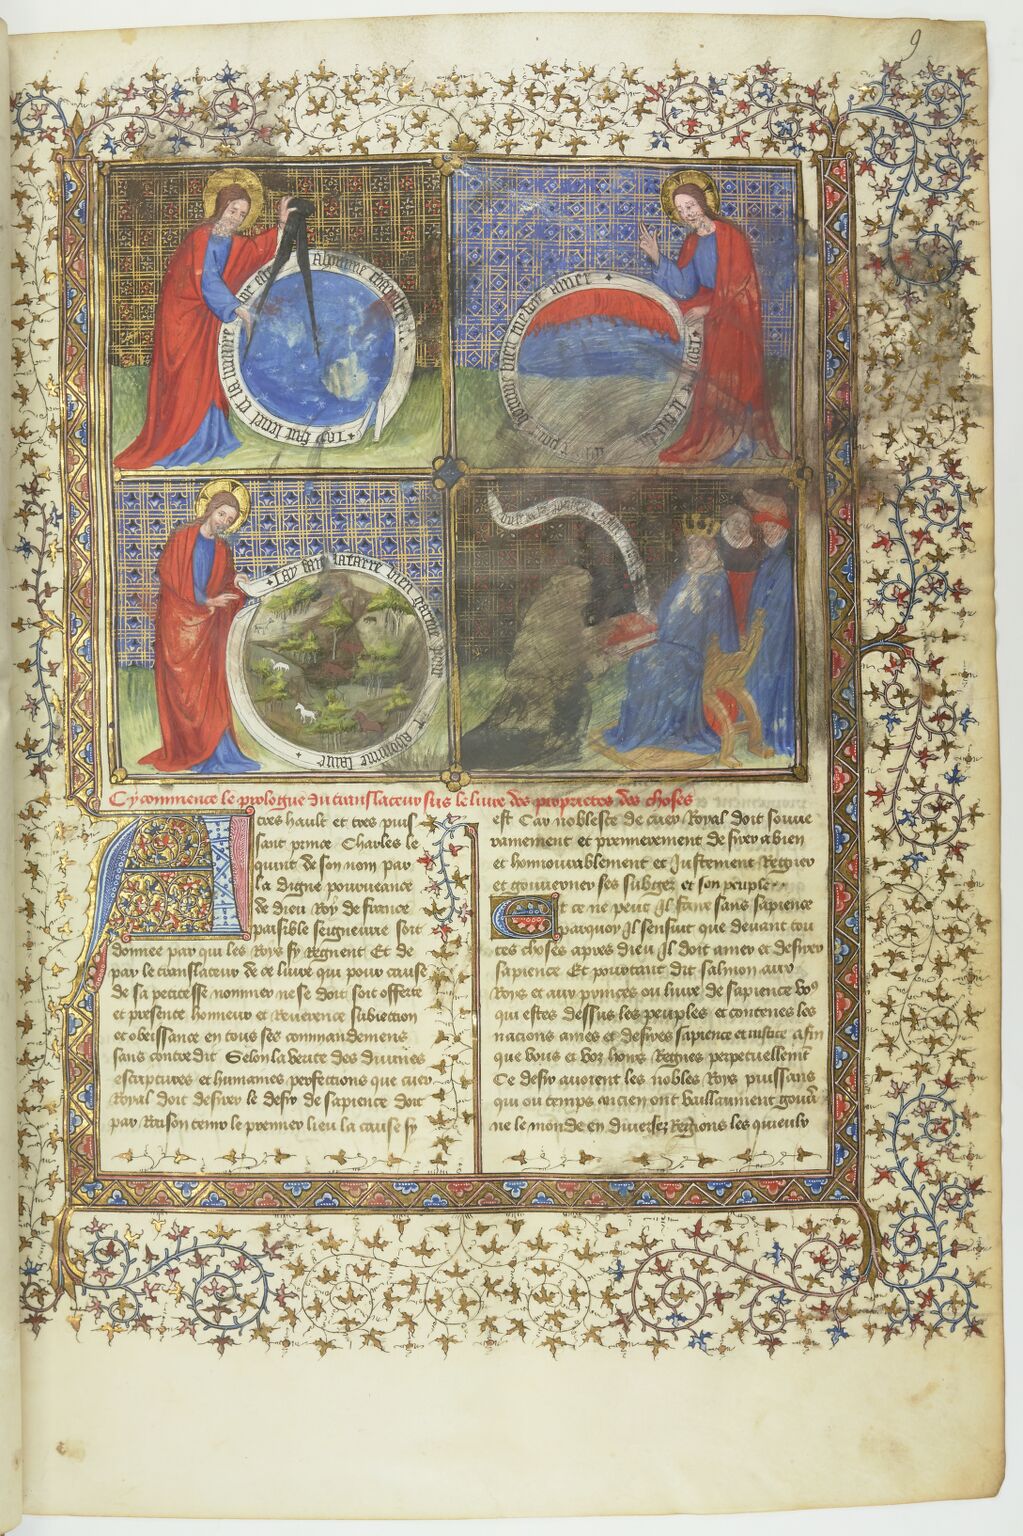 9
Cy commence le prologue du translateur sus le livre des proprietes des choses
A tres hault et tres puis
sant prince Charles le
quint de son nom par
la digne pourveance
de dieu Roy de france
paisible seigneurie soit
donnee par qui les Roys sy Regnent Et de
par le translateur de ce livre qui pour cause
de sa petitesse nommer ne se doit soit offerte
et presente honneur et Reverence subiection
et obeissance en tous ses commandemens
sans contredit Selon la verite des divines
escriptures et humaines perfections que cuer
Royal doit desirer le desir de sapience doit
par Raison tenir le premier lieu la cause sy
est Car noblesse de cuer Royal doit souve
rainement et premierement desirer a bien
et honnourablement et Justement Regner
et gouverner ses subgez et son peuple
Et ce ne peut Il faire sans sapience
parquoy Il sensuit que devant tou
tes choses apres dieu Il doit amer et desirer
sapience Et pourtant dit salmon aux
Roys et aux princes ou livre de sapience
qui estes dessus les peuples et
nacions ames et desires sapience et afin
que vous et voz hoirs Regnes perpetuellement
Ce desir avoient les nobles Roys puissans
qui ou temps ancien ont vaillaument gouver
ne le monde en diverses Regions les quieulx